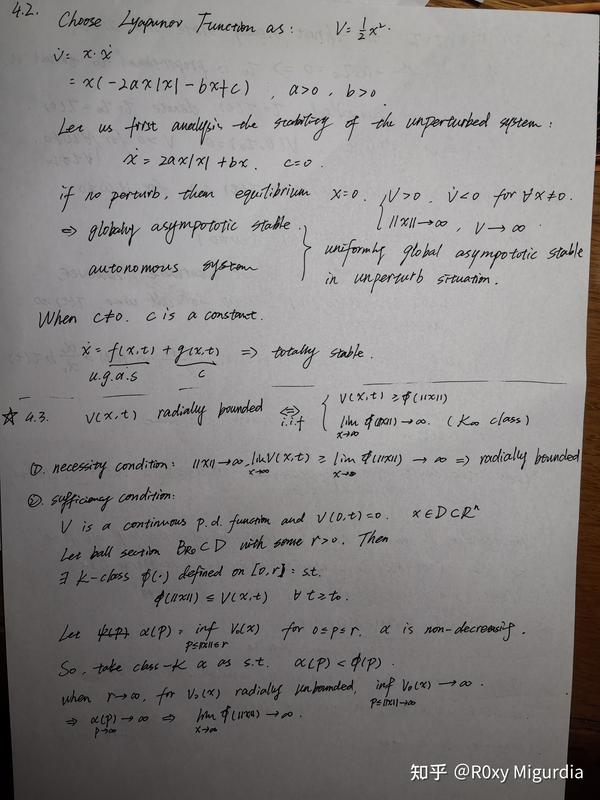 4.2. Choose Lyapunov Function as: V = ½x².
V̇ = x·ẋ
= x(-2ax|x| - bx + c), a>0, b>0
Let us first analysis the stability of the unperturbed system:
ẋ = 2ax|x| + bx. c=0.
if no perturb, then equilibrium x=0. { V>0, V̇<0 for ∀x≠0.
||x||→∞, V→∞
⇒ globally asympototic stable.
autonomous system } uniformly global asympototic stable
in unperturb situation.
When c≠0. c is a constant.
ẋ = f(x,t) + g(x,t) ⇒ totally stable.
u.g.a.s c
☆ 4.3. V(x,t) radially bounded ⇔ i.i.f { V(x,t) ≥ ϕ(||x||)
lim x→∞ ϕ(||x||) → ∞. (K∞ class)
①. necessity condition: ||x||→∞, lim x→∞ V(x,t) ≥ lim x→∞ ϕ(||x||) → ∞ ⇒ radially bounded
②. sufficiency condition:
V is a continuous p.d. function and V(0,t)=0. x∈D⊂Rⁿ
Let ball section BR0⊂D with some r>0. Then
∃ K-class ϕ(·) defined on [0,r]: s.t.
ϕ(||x||) ≤ V(x,t) ∀ t≥t₀.
Let α(p) = inf p≤||x||≤r V₀(x) for 0≤p≤r. α is non-decreasing.
So, take class-K α as s.t. α(p) < ϕ(p).
when r→∞, for V₀(x) radially unbounded, inf p≤||x||→∞ V₀(x) → ∞.
⇒ α(p) p→∞ → ∞ ⇒ lim x→∞ ϕ(||x||) → ∞.
知乎 @R0xy Migurdia